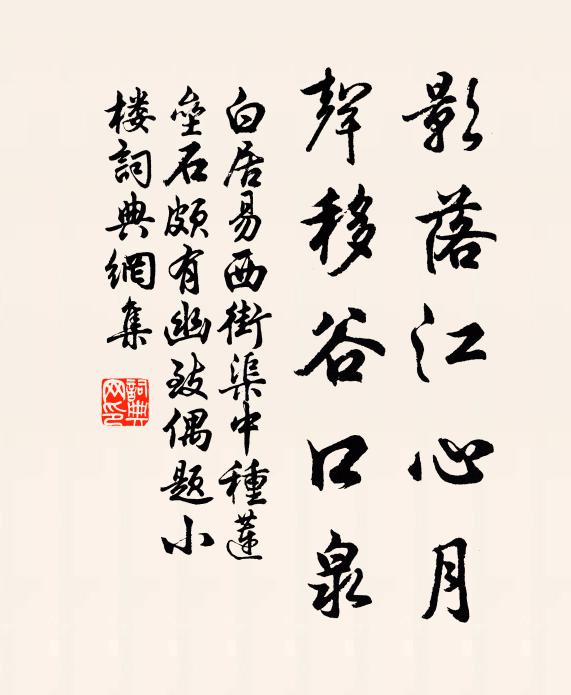 影落江心月
聲移谷口泉
白居易西街渠中種蓮
壘石頗有幽致偶題小
楼詞典網集
詞典
网印